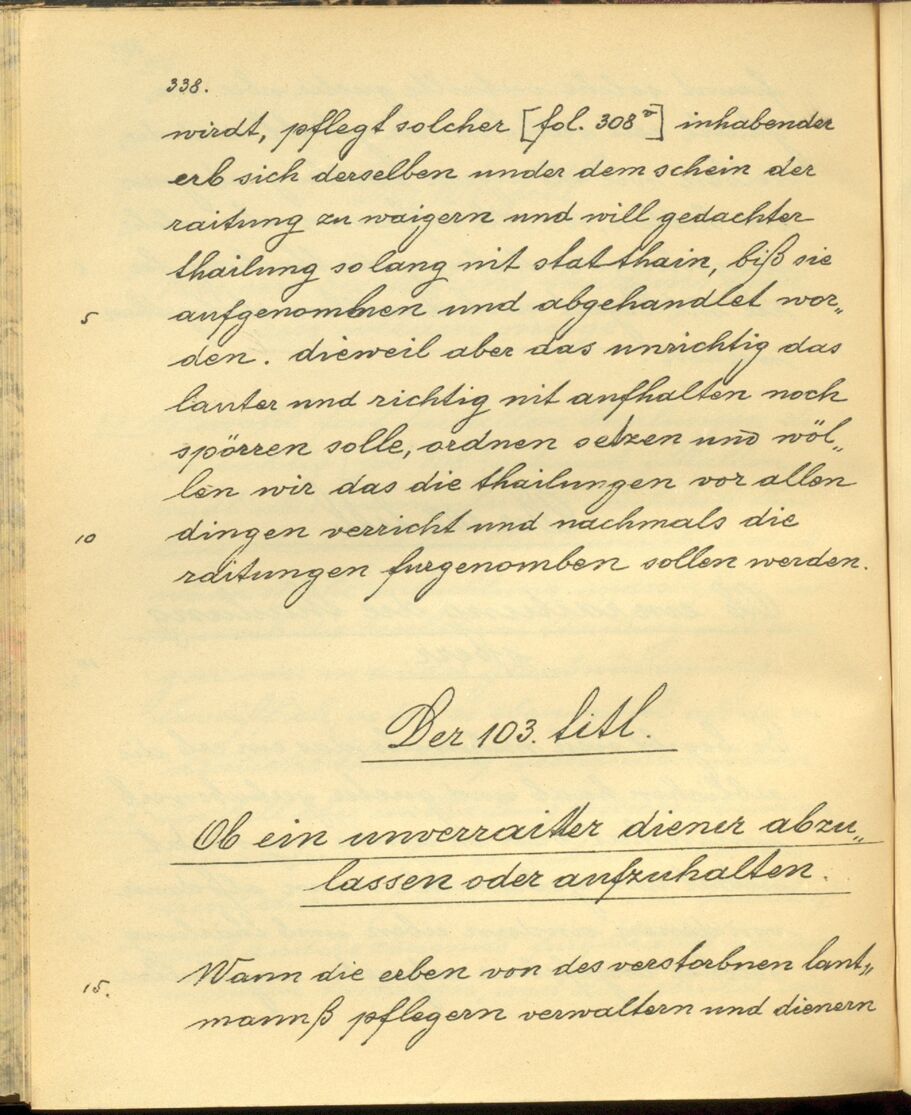 338.
wirdt, pflegt solcher [fol. 308v] inhabender
erb sich derselben under dem schein der
raitung zu waigern und will gedachter
thailung solang nit stat thain, biß sie
5 aufgenomben und abgehandlet wor„
den. dieweil aber das unrichtig das
lauter und richtig nit aufhalten noch
spörren solle, ordnen setzen und wöl„
len wir das die thailungen vor allen
10 dingen verricht und nachmals die
raitungen furgenomben sollen werden.
Der 103. titl.
Ob ein unverraitter diener abzu„
lassen oder aufzuhalten.
15. Wann die erben von des verstorbnen lant„
mannß pflegern verwaltern und dienern